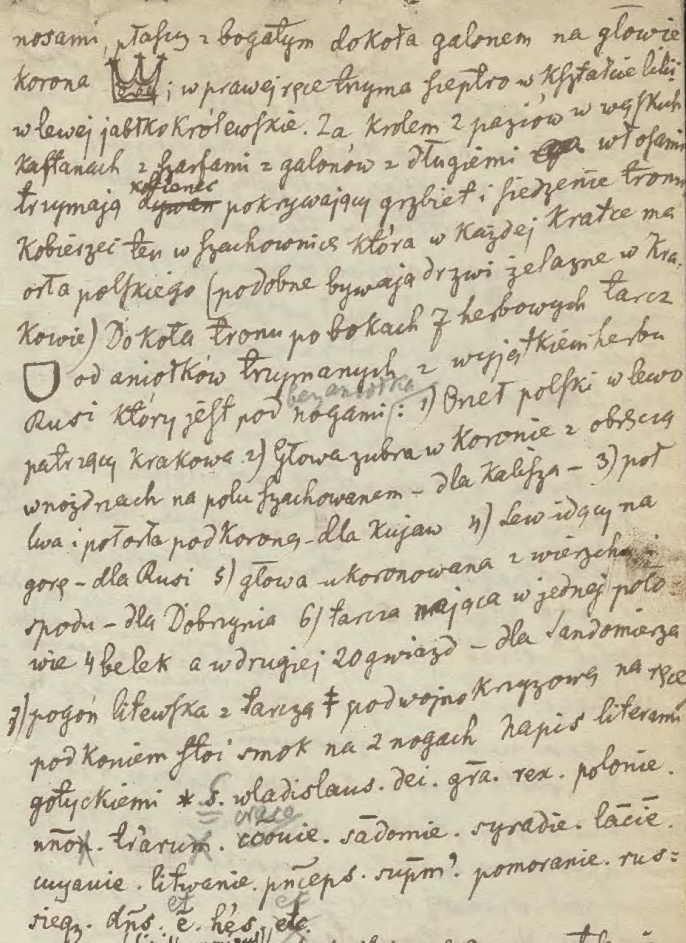 nosami, płaszcz z bogatym dokoła galonem na głowie
korona ; w prawej ręce trzyma sieptro w kształcie lilii
w lewej jabłko Królewskie. Za Krolem 2 paziów w wąskich
kaftanach z szarfami z galonów z długiemi włosami
kobierzec
trzymają dywan pokrywający grzbiet i siedzenie tronu
Kobierzec ten w szachownicę która w każdej Kratce ma
orła polskiego (podobne bywają drzwi żelazne w Kra-
Kowie) Dokoła tronu po bokach 7 herbowych tarcz
od aniołków trzymanych z wyjątkiem herbu
bez aniołka
Rusi który jest pod nogami: 1) Orzeł polski w lewo
patrzący Krakowa 2) Głowa żubra w Koronie z obręczą
w nozdrzach na polu szachowanem – dla Kalisza – 3) poł
lwa i poł orła pod Koroną – dla Kujaw 4) Lew idący na
gorę – dla Rusi 5) głowa ukoronowana z wierzchu i
spodu – dla Dobrzynia 6) tarcza mająca w jednej poło-
wie 4 belek a w drugiej 20 gwiazd – dla Sandomierza
7) pogoń litewska z tarczą ‡ podwojno Krzyżową na ręce
pod Koniem stoi smok na 2 nogach napis literami
gotyckiemi * s. wladislaus. dei. gra. rex. polonie.
nnon. trarum. ccouie. sādomie. syradie. lācie.
cuyauie. litwanie. pnceps. supm'. pomoranie. rus=
et et
sieqz. dns. e. hes. etc.